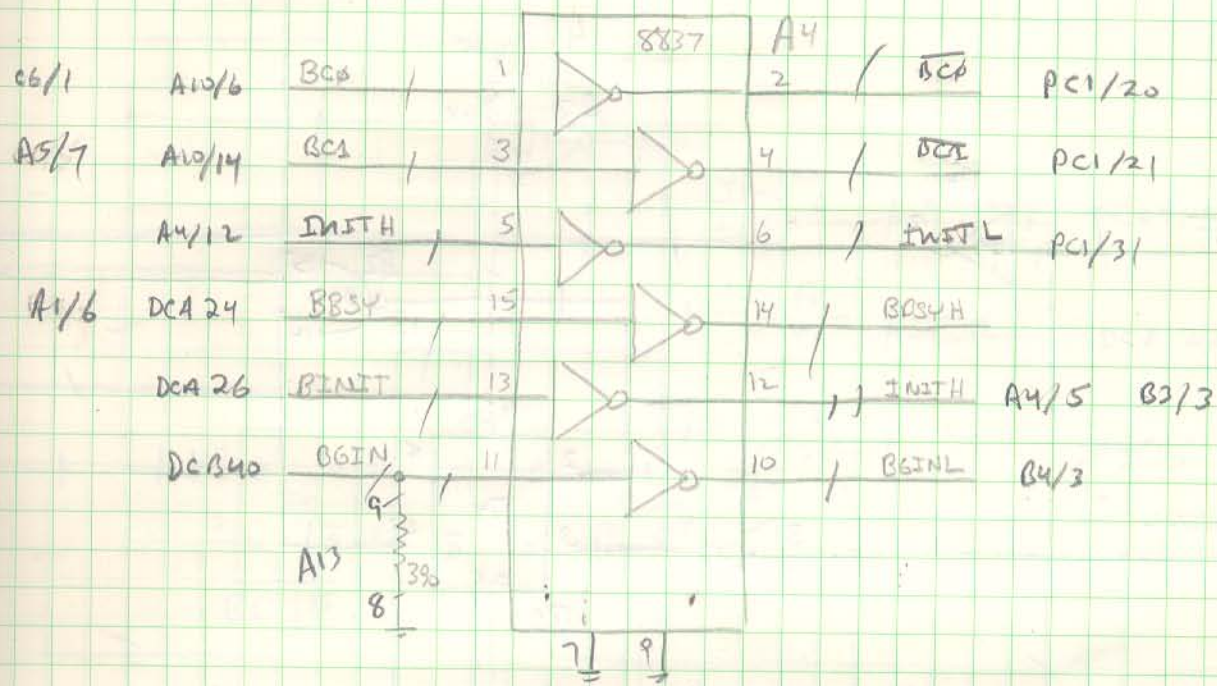 8837 A4
C6/1 A10/6 BCØ 1 2 BCØ PC1/20
A5/7 A10/14 BC1 3 4 BC1 PC1/21
A4/12 INITH 5 6 INITL PC1/31
A1/6 DCA 24 BBSY 15 14 BBSYH
DCA 26 BINIT 13 12 INITH A4/5 B3/3
DCB40 BGIN 11 10 BGINL B4/3
9
A13 390
8
7 9